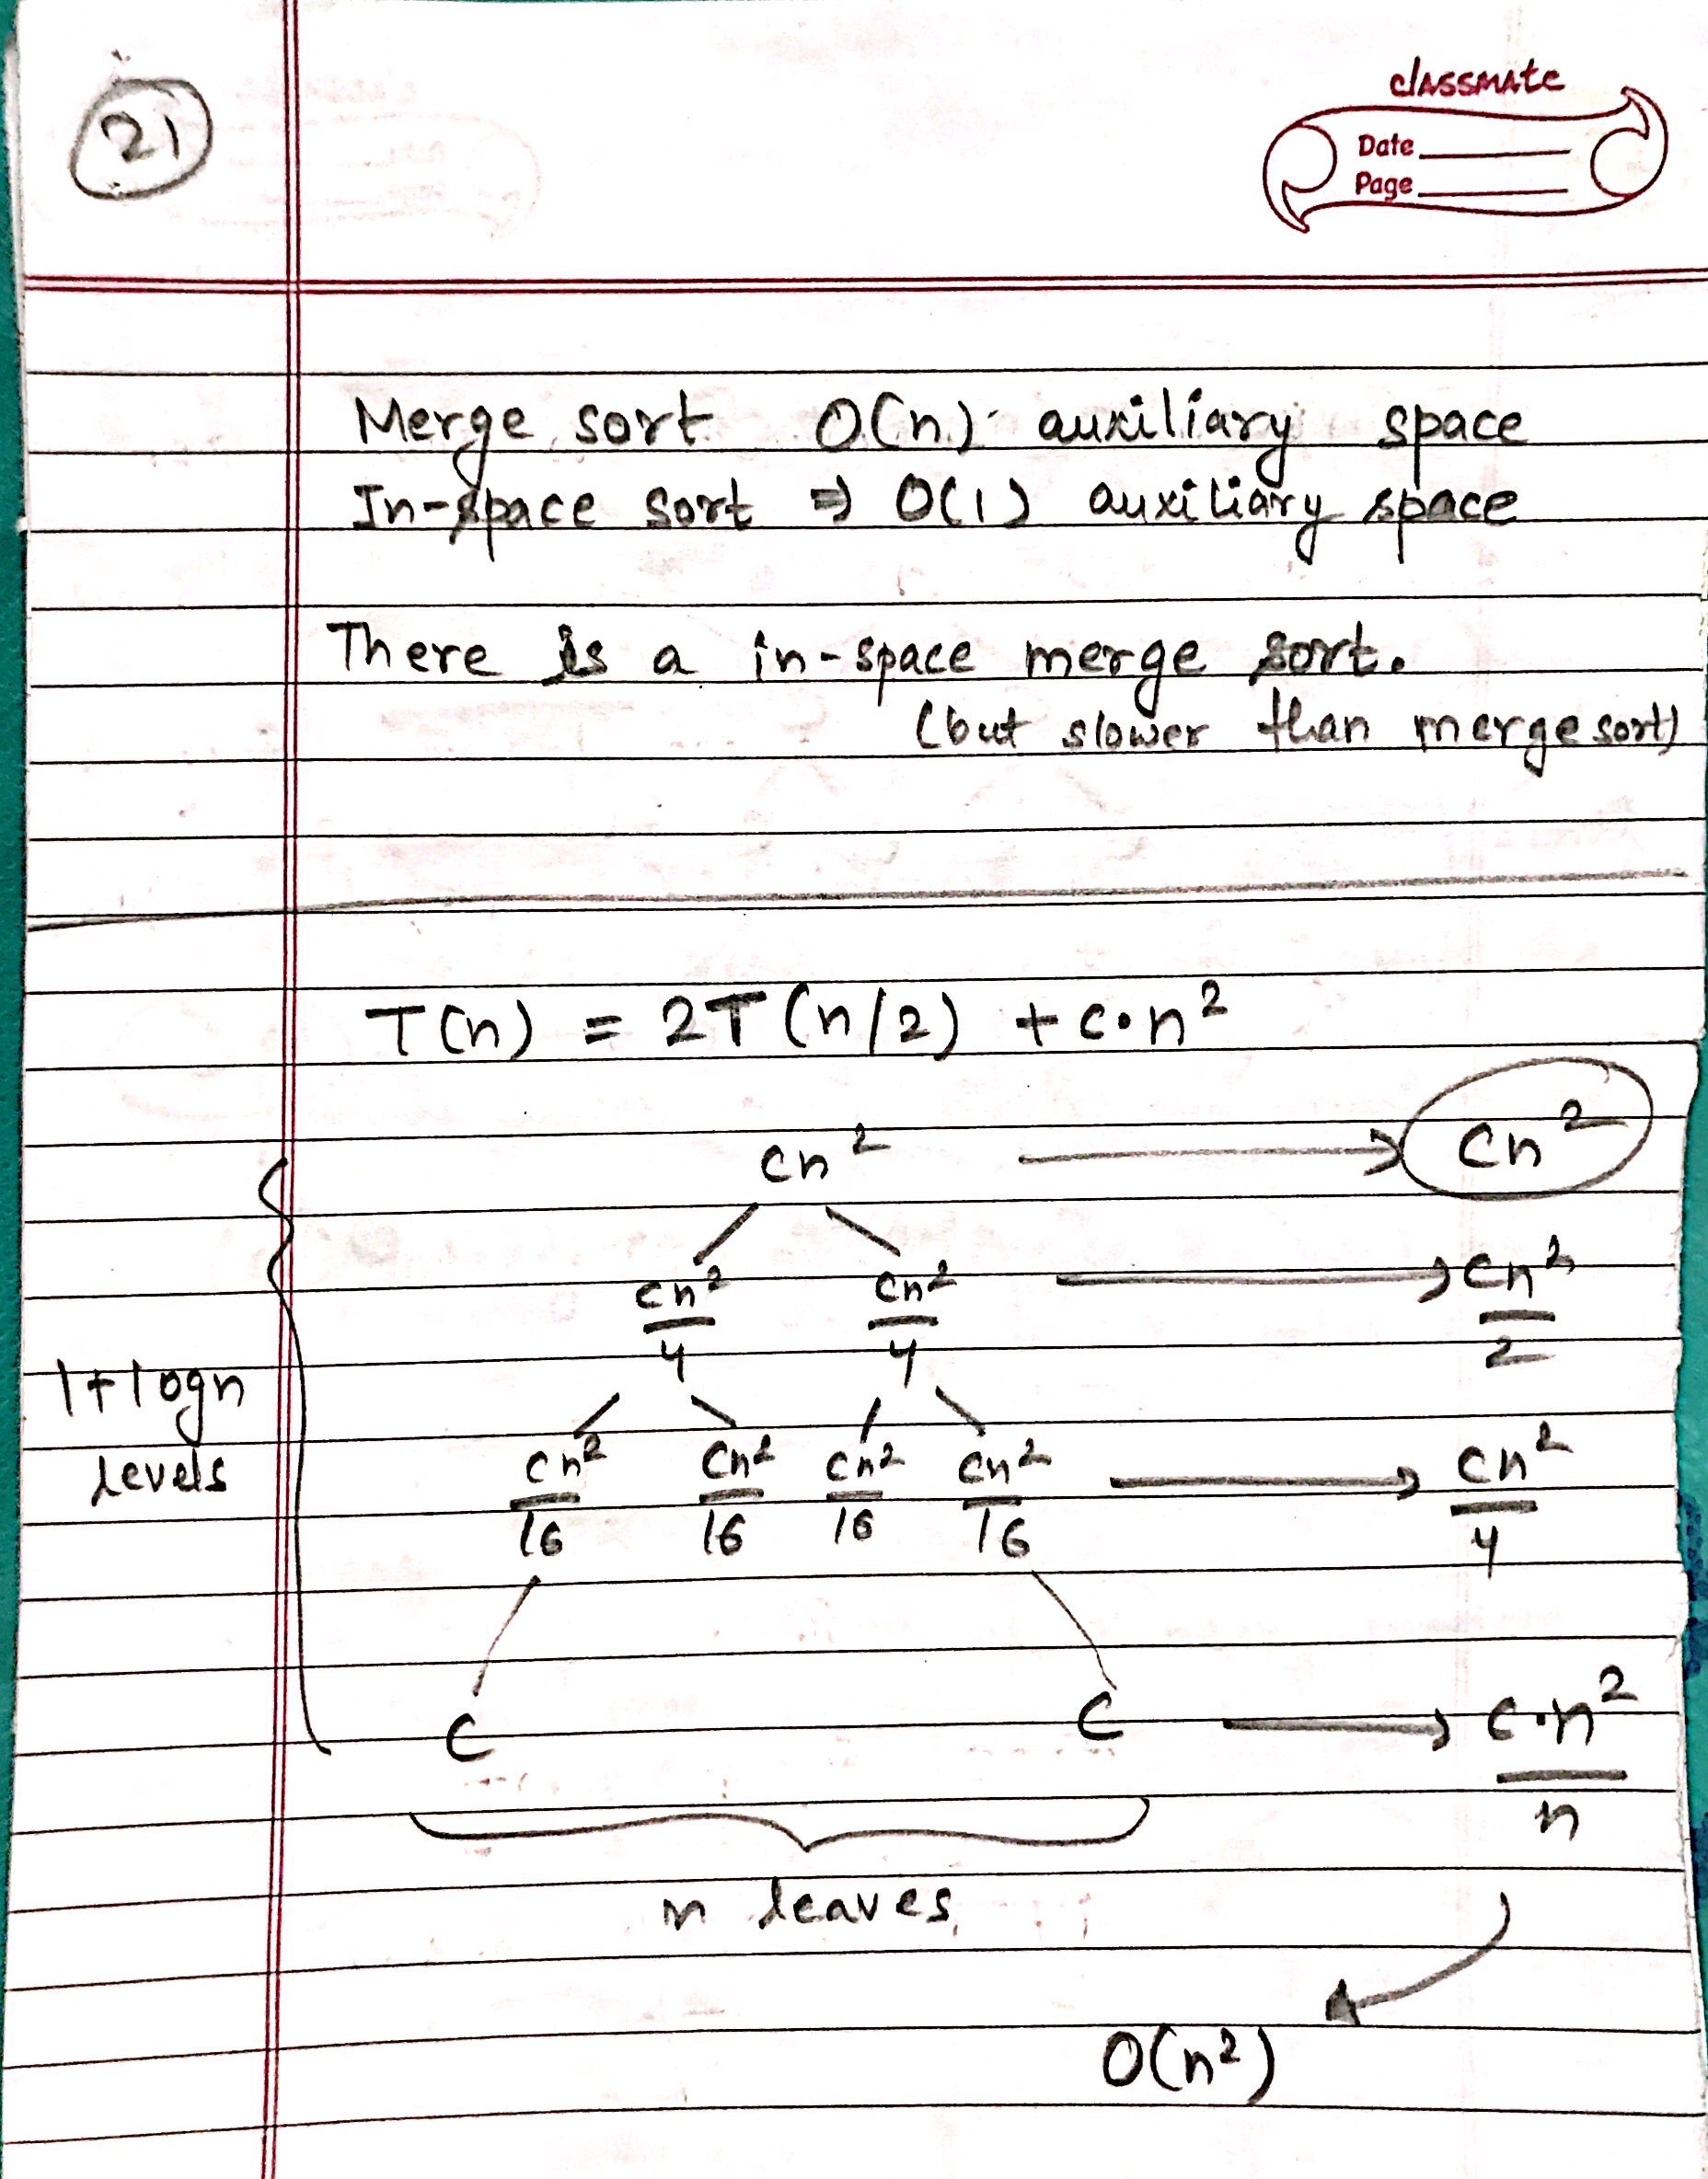 21
classmate
Date
Page
Merge sort O(n) auxiliary space
In-space sort ⇒ O(1) auxiliary space
There is a in-space merge sort.
(but slower than merge sort)
T(n) = 2T(n/2) + c·n²
cn² → cn²
cn²/4 cn²/4 → cn²/2
1+logn
levels
cn²/16 cn²/16 cn²/16 cn²/16 → cn²/4
c c → c·n²/n
n leaves
O(n²)